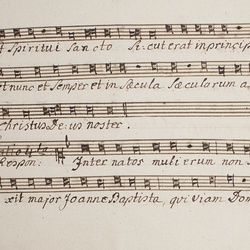 et Spiritui Sancto Sicut erat in princip
et nunc et Semper et in Sæcula Sæculorum a
Christus Deius noster.
Respon: Inter natos mulierum non s
exit major Joanne Baptista, qui viam Dom